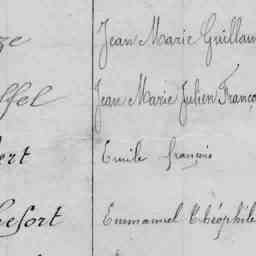 Jean Marie Guillau
Jean Marie Julien Franço
ert Emile françois
hefort Emmanuel Théophile